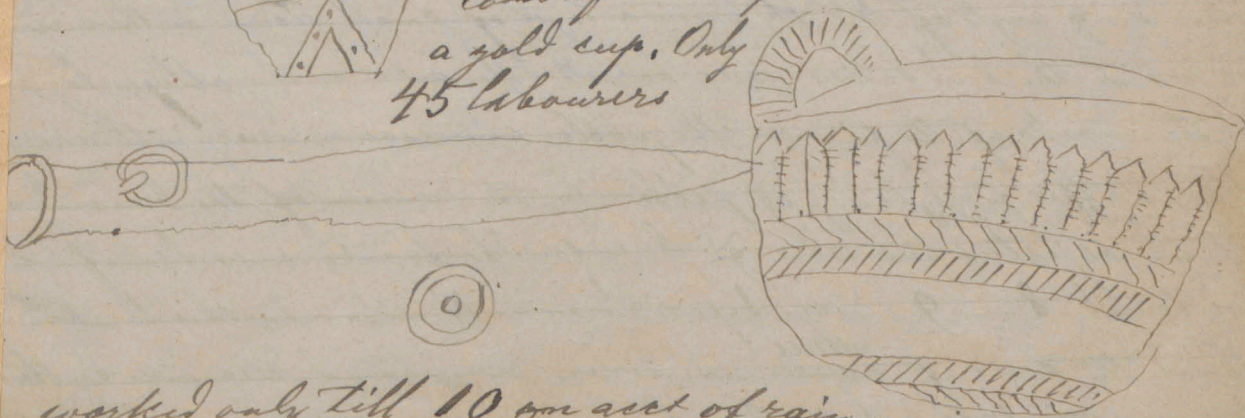 a gold cup. Only
45 labourers
worked only till 10 on acct of rain